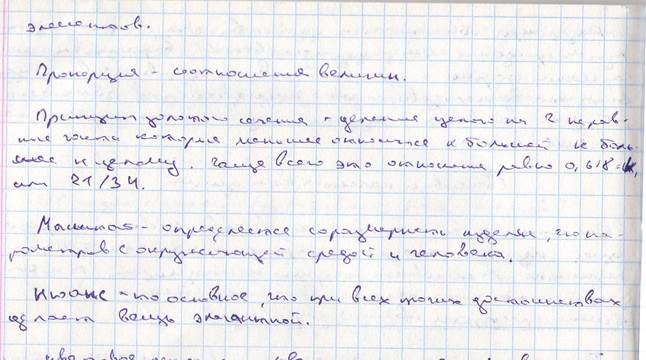 элементов.
Пропорция - соотношения величин.
Принцип золотого сечения - деление целого на 2 нерав-
ные части которые меньшее относится к большей как боль-
шее к целому. Чаще всего это отношение равно 0,618
или 21/34.
Масштаб - определяется соразмерность изделия, его па-
раметров с окружающей средой и человека.
Нюанс - то основное, что при всех прочих достоинствах
делает вещь элегантной.